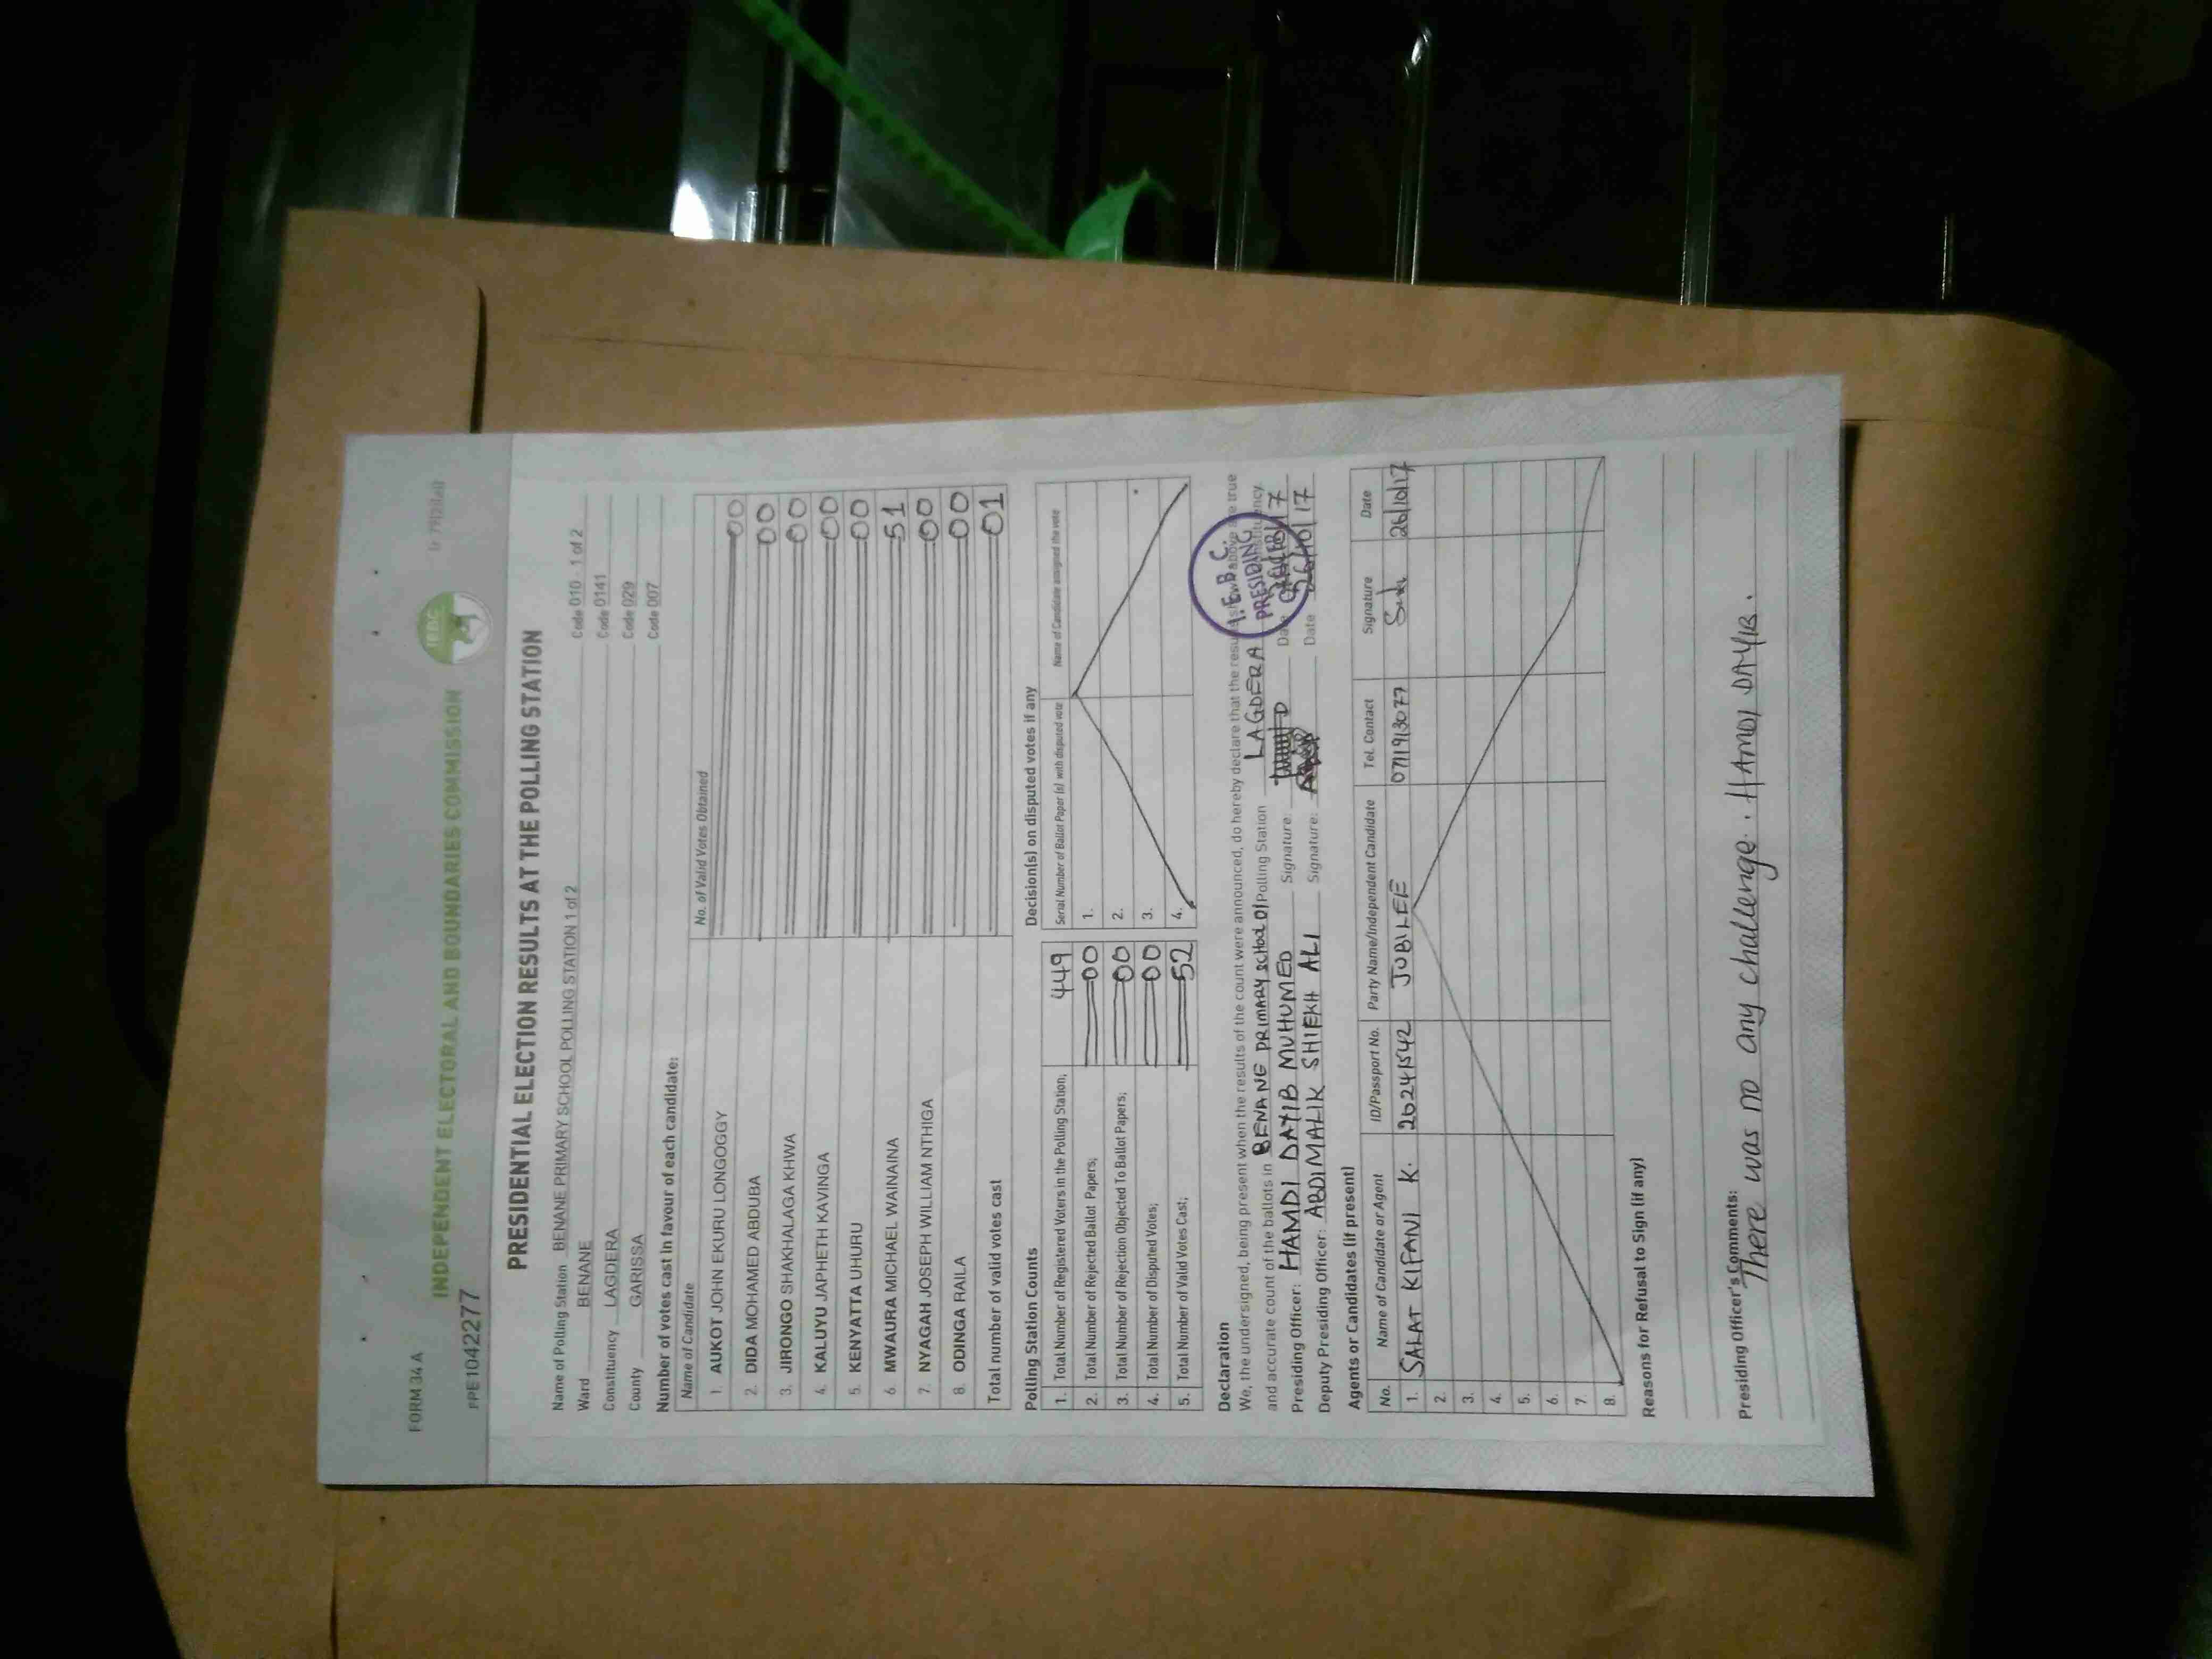 FORM 34 A
INDEPENDENT ELECTORAL AND BOUNDARIES COMMISSION
IEBC
PPE1042277
PRESIDENTIAL ELECTION RESULTS AT THE POLLING STATION
Name of Polling Station BENANE PRIMARY SCHOOL POLLING STATION 1 of 2 Code 010 - 1 of 2
Ward BENANE Code 0141
Constituency LAGDERA Code 029
County GARISSA Code 007
Number of votes cast in favour of each candidate:
Name of Candidate No. of Valid Votes Obtained
1. AUKOT JOHN EKURU LONGOGGY 00
2. DIDA MOHAMED ABDUBA 00
3. JIRONGO SHAKHALAGA KHWA 00
4. KALUYU JAPHETH KAVINGA 00
5. KENYATTA UHURU 00
6. MWAURA MICHAEL WAINAINA 51
7. NYAGAH JOSEPH WILLIAM NTHIGA 00
8. ODINGA RAILA 00
Total number of valid votes cast 01
Polling Station Counts
1. Total Number of Registered Voters in the Polling Station; 449
2. Total Number of Rejected Ballot Papers; 00
3. Total Number of Rejection Objected To Ballot Papers; 00
4. Total Number of Disputed Votes; 00
5. Total Number of Valid Votes Cast; 52
Decision(s) on disputed votes if any
Serial Number of Ballot Paper (s) with disputed vote Name of Candidate assigned the vote
1.
2.
3.
4.
Declaration
We, the undersigned, being present when the results of the count were announced, do hereby declare that the results shown above are true
and accurate count of the ballots in BENANE PRIMARY School 01 Polling Station LAGDERA Constituency.
Presiding Officer: HAMDI DAYIB MUHUMED Signature: Date
Deputy Presiding Officer: ABDIMALIK SHIEKH ALI Signature: Date 26/10/17
I.E.B.C.
PRESIDING
OFFICER
Agents or Candidates (if present)
No. Name of Candidate or Agent ID/Passport No. Party Name/Independent Candidate Tel. Contact Signature Date
1. SALAT KIFANI K. 26241542 JUBILEE 0711913077 26/10/17
2.
3.
4.
5.
6.
7.
8.
Reasons for Refusal to Sign (if any)
Presiding Officer's Comments:
There was no any challenge. HAMDI DAYIB.